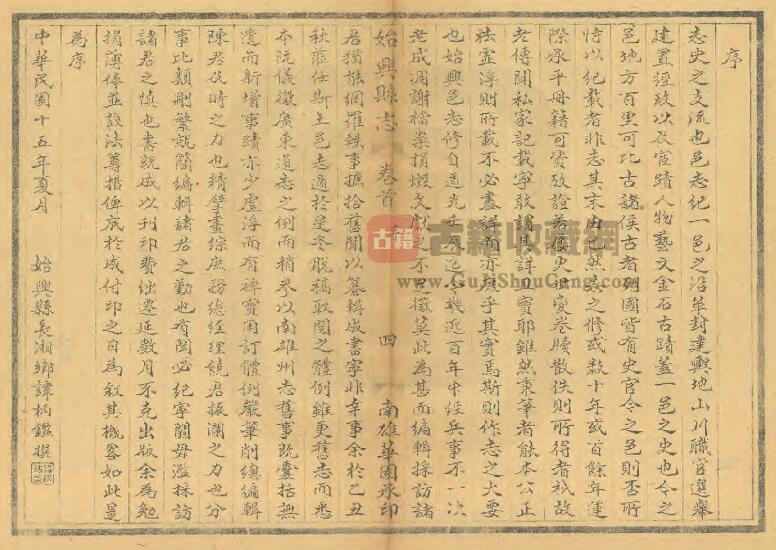 序
志史之支流也邑志紀一邑之沿革封建輿地山川職官選舉
建置經政以及宦蹟人物藝文金石古蹟蓋一邑之史也今之
邑地方百里可比古諸侯古者列國皆有史官今之邑則否所
恃以紀載者非志其末由已然志之修或數十年或百餘年運
際承平冊籍可資攷證若屢更世變卷牘散佚則所得者祇故
老傳聞私家記載寧敢謂其詳且實耶雖然秉筆者能本公正
祛靈浮則所載不必盡詳而亦庶乎其實焉斯則作志之大要
也始興邑志修自道光迄今幾近百年中經兵事不一次
老成凋謝檔案損燬文獻之不足徵莫此為甚而編輯採訪諸
始興縣志 卷首 四 南雄華國承印
君猶能網羅軼事摭拾舊聞以纂輯成書寧非幸事余於乙丑
秋蒞任斯土邑志適於是冬脫稿取閱之體例雖更舊志而悉
本阮儀徵廣東通志之例而稍參以南雄州志舊事既囊括無
遺而新增事蹟亦少虛浮而有裨實用訂體例嚴筆削總編輯
陳君及時之力也精擘畫綜庶務總經理饒君振瀾之力也分
事比類刪繁就簡編輯諸君之勤也有聞必紀寧闕毋濫採訪
諸君之慎也書既成以刊印費絀遷延數月不克出版余為勉
捐薄俸並設法籌措俾底於成付印之日為敘其概畧如此是
為序
中華民國十五年夏月 始興縣長湘鄉譚柄鑑撰
古籍
古籍收藏網
www.GuJiShouCang.com